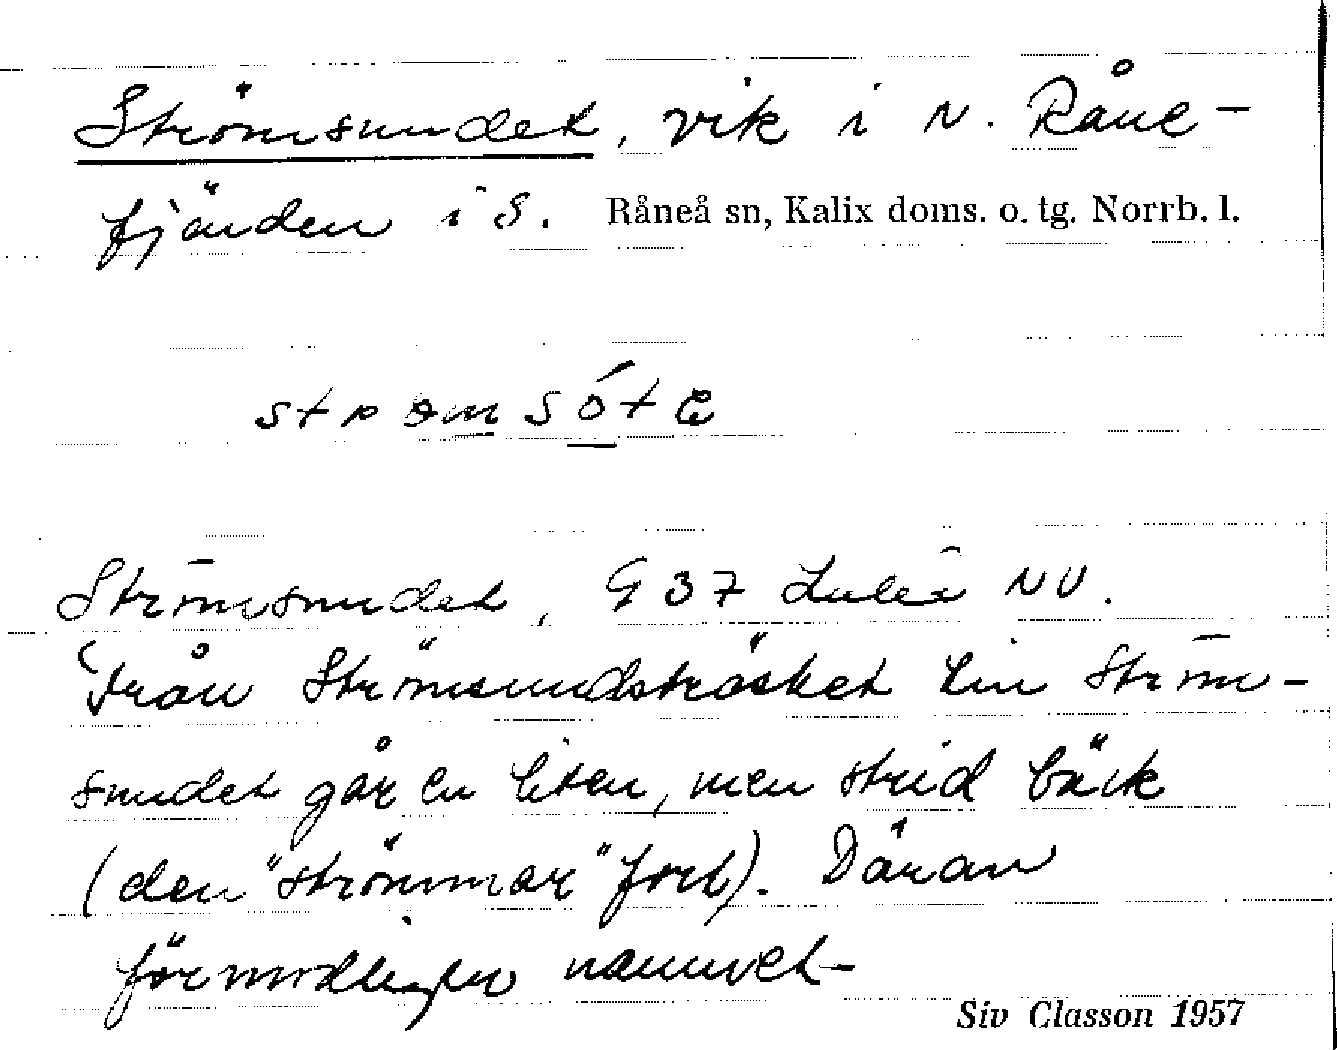 Strömsundet, vik i N. Råne-
fjärden i S. Råneå sn, Kalix doms. o. tg. Norrb. l.
Strömsundet, 937 Luleå NV.
Från Strömsundsträsket till Ström-
sundet går en liten, men strid bäck
(den "strömmar" fort). Därav
förmodligen namnet.
Siv Classon 1957